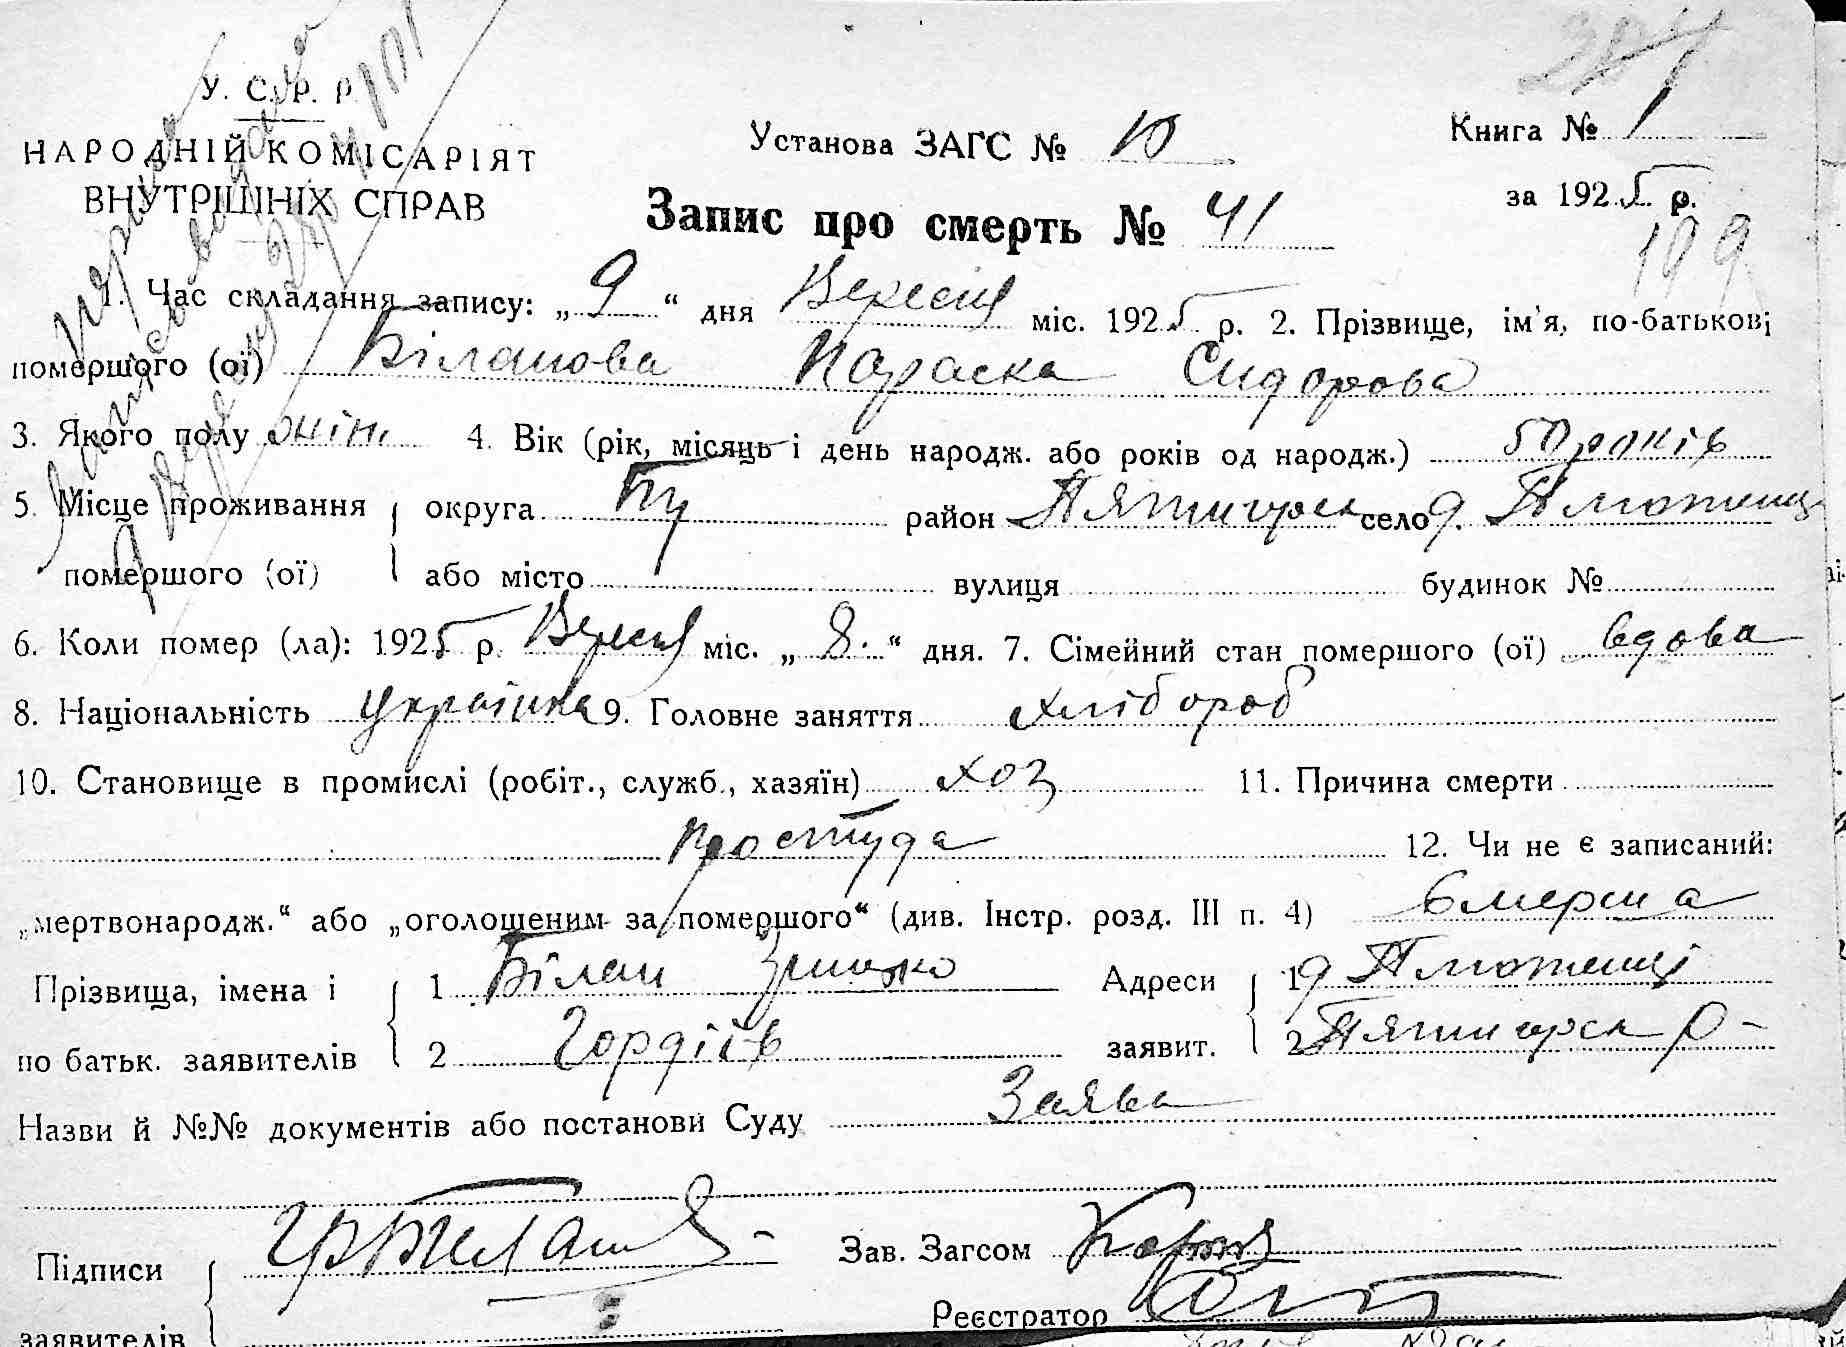 У. С. Р. Р.
НАРОДНІЙ КОМІСАРІЯТ
ВНУТРІШНІХ СПРАВ
Установа ЗАГС № 10
Книга № 1
за 1925 р.
109
Запис про смерть № 41
1. Час складання запису: „9“ дня Вересня міс. 1925 р. 2. Прізвище, ім'я, по-батькові
помершого (ої) Біланова Параска Сидорова
3. Якого полу жін. 4. Вік (рік, місяць і день народж. або років од народж.) 50 років
5. Місце проживання округа район Пятигорск село д.
помершого (ої) або місто вулиця будинок №
6. Коли помер (ла): 1925 р. Вересня міс. „8.“ дня. 7. Сімейний стан помершого (ої) вдова
8. Національність українка 9. Головне заняття хлібороб
10. Становище в промислі (робіт., служб., хазяїн) хоз 11. Причина смерти
простуда 12. Чи не є записаний:
„мертвонародж.“ або „оголошеним за помершого“ (див. Інстр. розд. III п. 4) вмерша
Прізвища, імена і 1 Білан Адреси 1 д
по батьк. заявителів 2 Гордіїв заявит. 2 Пятигорск р-
Назви й №№ документів або постанови Суду Заява
Підписи Зав. Загсом
заявителів Реєстратор